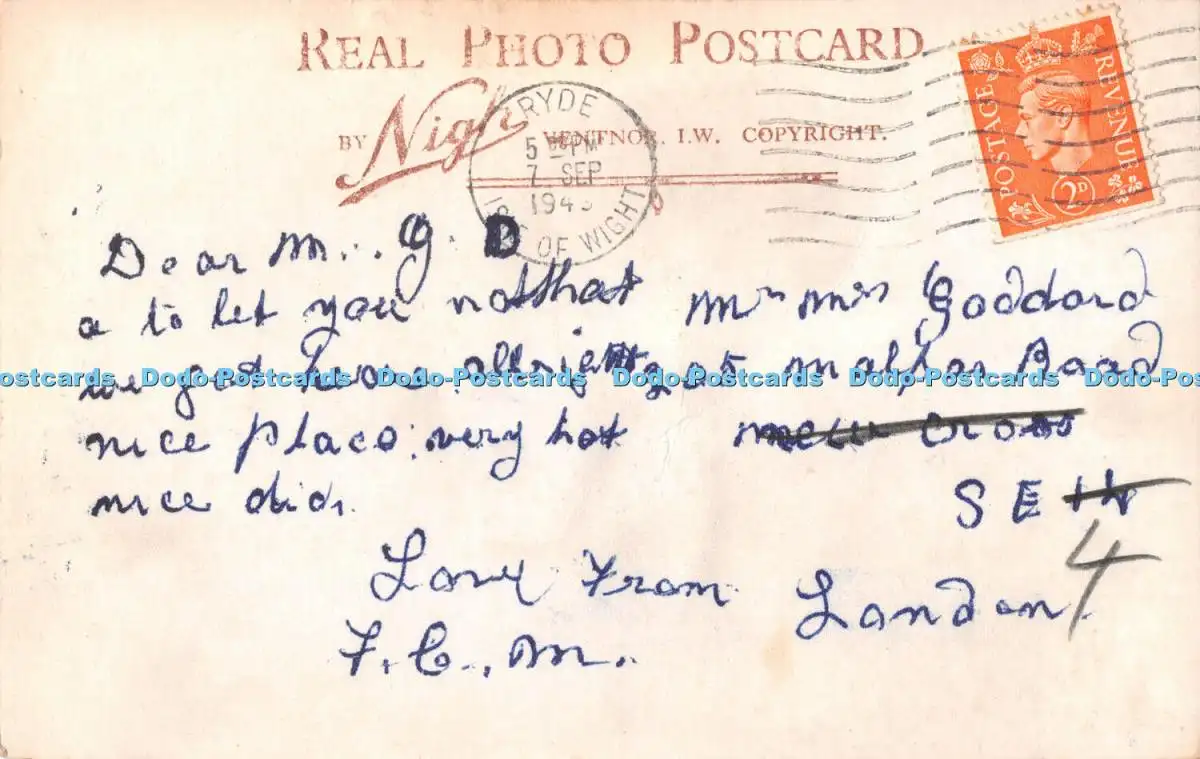 REAL PHOTO POSTCARD
BY Nigh VENTNOR, I.W. COPYRIGHT.
RYDE
5 PM
7 SEP
194
ISLE OF WIGHT
POSTAGE REVENUE
2D
Dear M.. G. D
a to let you not that
we got here allright
nice place: very hot
nice
Love From
F. C., M.
Mr Mrs Goddard
25 Road
new cross
S E 14
4
London
Postcards Dodo-Postcards Dodo-Postcards Dodo-Postcards Dodo-Postcards Dodo-Postcards